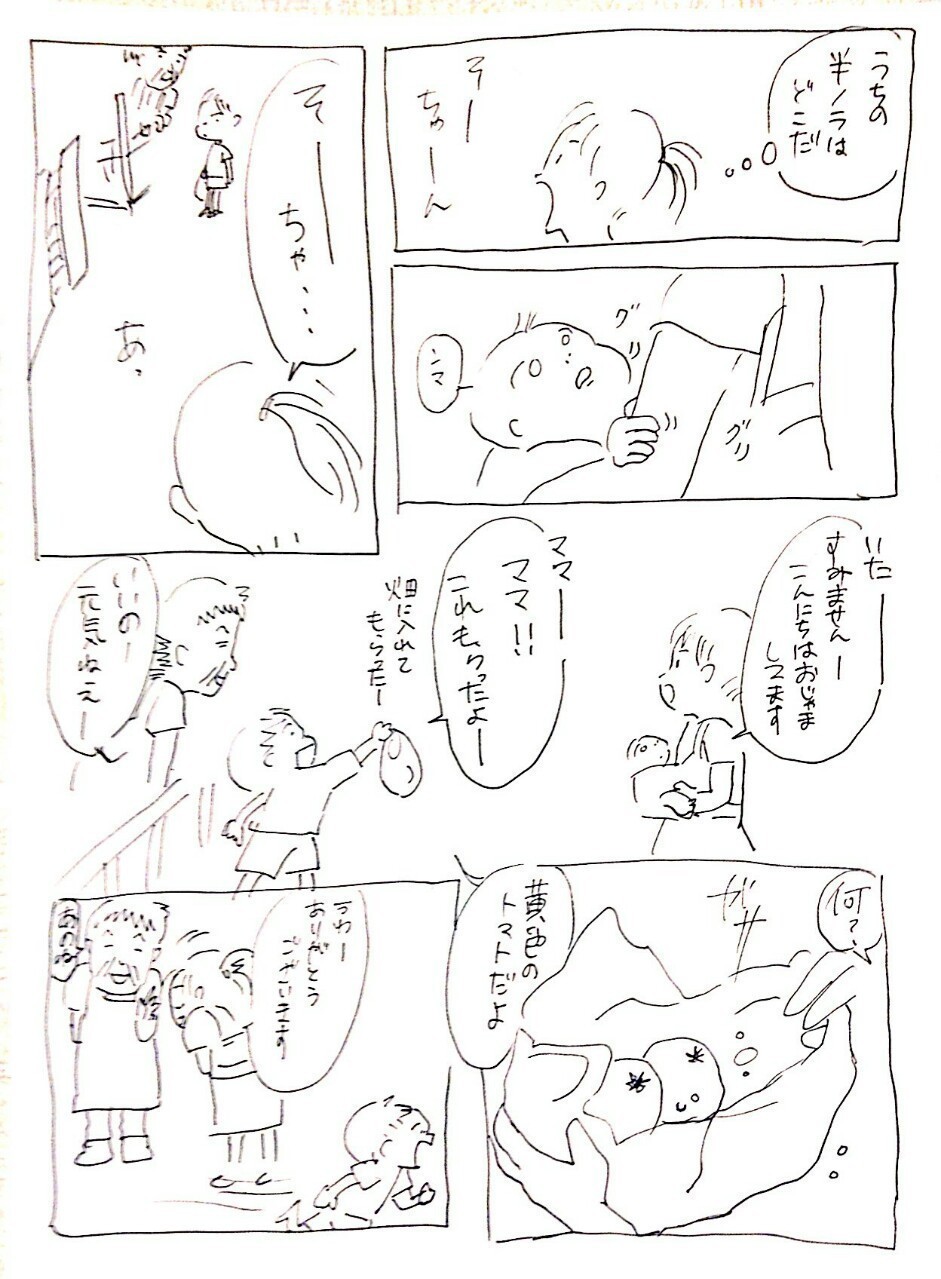 うちの
半ノラは
どこだ
そー
ちゃーん
グリ
グリ
ンマ
そーー
ちゃ・・・
あ、
いたーー
すみませんー
こんにちはおじゃま
してます
ママー
ママ!!
これもらったよー
畑に入れて
もらったー
いいのー
元気ねえー
何?
ガサ
黄色の
トマトだよ
うわー
ありがとう
ございます